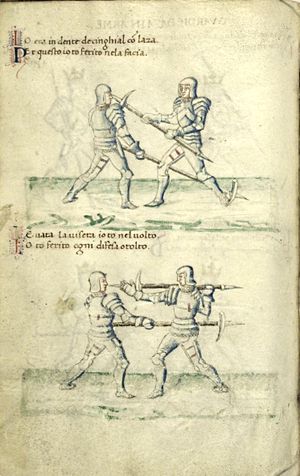 IO era in dente de cinghial cõ laza.
PEr questo io to ferito ne la facia.
LEuata la visera io to nel volto.
IO to ferito ogni difesa o tolto.